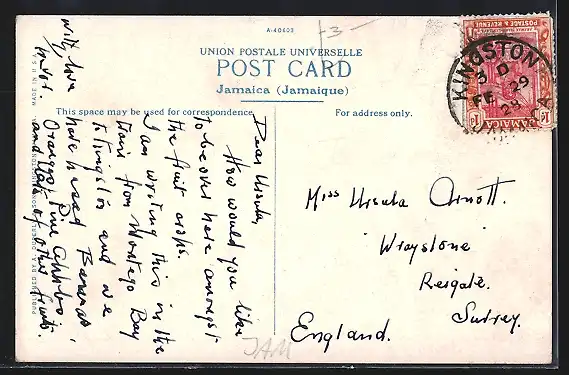 A-40603
-3-
UNION POSTALE UNIVERSELLE
POST CARD
Jamaica (Jamaique)
This space may be used for correspondence
For address only.
POSTAGE & REVENUE
JAMAICA
1d 1d
KINGSTON
3 D
FE 29
28
JAMAICA
Dear Ursula,
How would you like
to be over here amongst
the fruit crops.
I am writing this in the
train from Montego Bay
to Kingston and we
have passed Bananas,
Oranges, Pine Apples,
and lots of other fruits.
with love
Miss Ursula Arnott.
'Wraystone'
Reigate.
Surrey.
England.
JAM